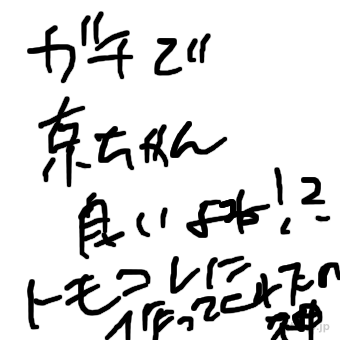 ガチで
京ちゃん
良いよね!?
トモコレに
作ってくれたの
神
JP